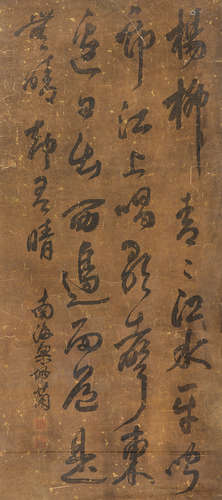 楊柳青〻江水平聞
郎江上唱歌聲東
邊日出西邊雨道是
無晴却有晴
南海梁佩蘭